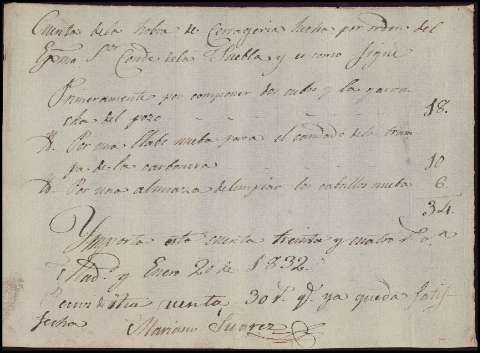 Cuenta de la hobra de Cerrageria hecha por orden del
Exmo Sor Conde de la Puebla y es como sigue
Primeramente por componer dos cubos y la garru
cha del pozo 18.
Yd. Por una llabe nueba para el candado de la tram
pa de la carbonera 10
Yd. Por una almuaza de limpiar los caballos nueba 6
34.
Ymporta esta cuenta treinta y cuatro Rs
Madd y Enero 20 de 1832.
cuenta 30 rs qe ya queda satis
fecha Mariano Suarez